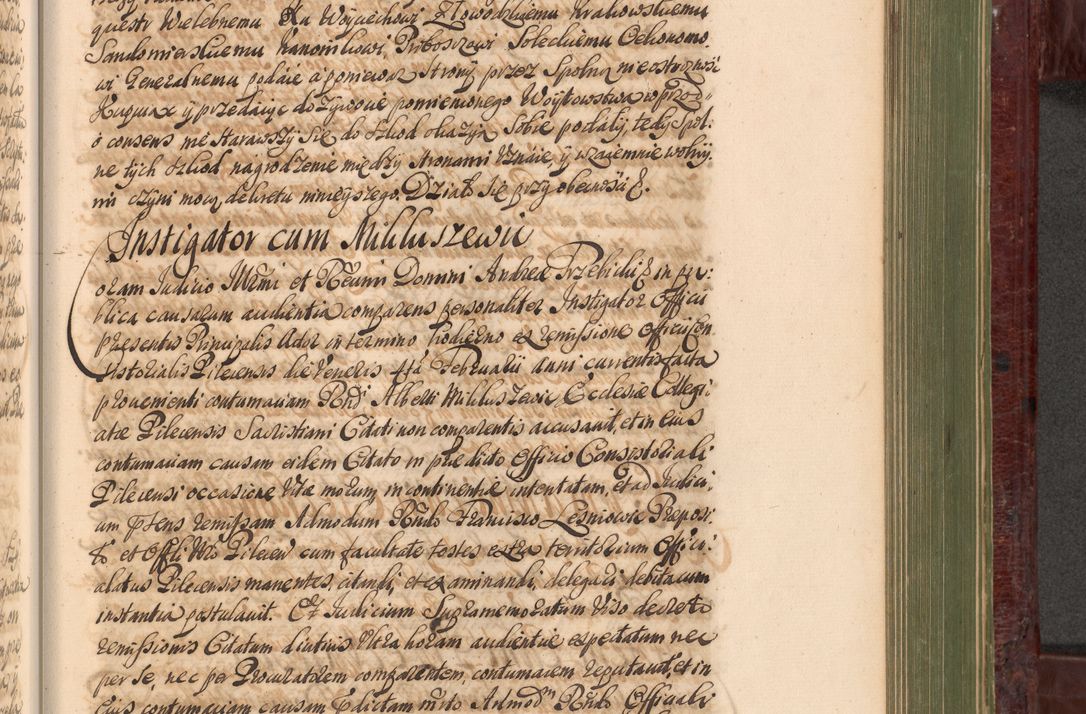 questr Wielebnemu Xa Woyciechowi Zlowodzkiemu Krakowskiemu
Sandomierskiemu Kanonikowi, Proboszczowi Soleckiemu Oekonomo,
wi Generalnemu podaie a poniewaz Strony przez Spolną nieostroznosc
Kupuiąc y przedaiąc dozywocie pomienionego Woytowstwa w przod
o consens nie starawszy się do szkod okazyą Sobie podały, tedy Spol:
ne tych szkod nagrodzenie między stronami Uznaie, y wzaiemnie wolny,
mi czyni mocą dekretu ninieyszego. Działo Się przy obecnosci &.
Instigator cum Mikluszewic
oram Iudicio Illrmi et Rndmi Domini Andreæ Trzebicki & in pu:
blica causarum audientia comparens personaliter Instigator Officii
præsentis Principalis Actor in termino hodierno ex remissione Officii Con
sistorialis Pilecensis die Veneris 4ta Februarii anni currentis facta
provenienti contumaciam Rndi Alberti Mikluszewic, Ecclesiæ Collegi:
atæ Pilecensis Sacristiani Citati non comparentis accusavit, et in eius
contumaciam causam eidem Citato in prædicto Officio Consistoriali
Pilecensi occasione Vitæ morum incontinentiæ intentatam, et ad Iudici,
um ptens remissam Admodum Rndo Francisco Lesniowic Præposi,
to et Offli Mro Pilecen cum facultate testes extra territorium Offici:
alatus Pilecensis manentes, citandi, et examinandi, delegari debita cum
instantia postulavit. Et Iudicium Supramemoratum Viso decreto
remissionis Citatum diutius Ultra horam audientiæ expectatum nec
per Se, nec per Procuratorem comparentem, contumacem reputavit, et in
Eius contumaciam causam Edictam mrto Admodm Rndo Officiali